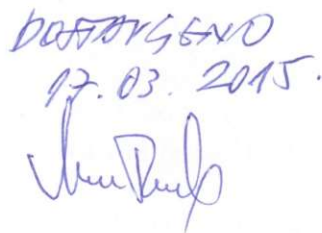 DOSTAVLJENO
17.03.2015.